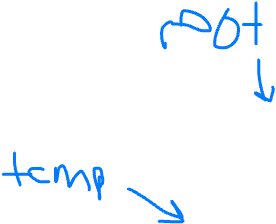 root
temp